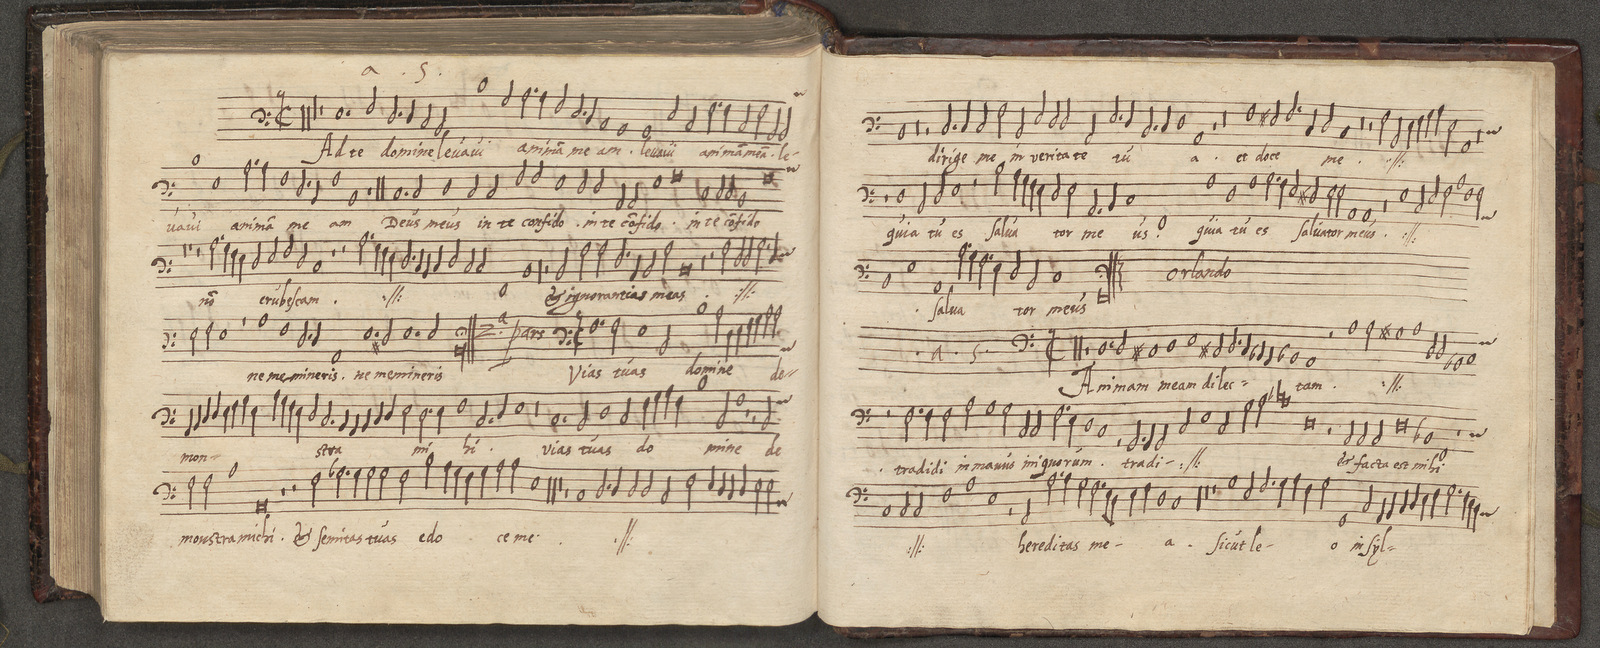 a . 5 .
Ad te domine levavi animā me am . levavi animā meā . le-
vavi animā me am Deus meus in te confido . in te cōfido . in te cōfido
nō erubescam . :// : & ignorantias meas . :// :
ne memineris . ne memineris 2ᵃ pars Vias tuas domine de-
mon- stra mi hi . vias tuas do mine de
monstra michi . & semitas tuas edo ce me . :// :
dirige me in veritate tu a . et doce me . :// :
quia tu es salva tor me us . quia tu es salvator meus . :// :
. salva tor meus Orlando
. a . 5 . Animam meam dilec- tam . :// :
. tradidi in manus iniquorum . tradi- :// : & facta est mihi
:// : hereditas me- a . sicut le- o in syl-